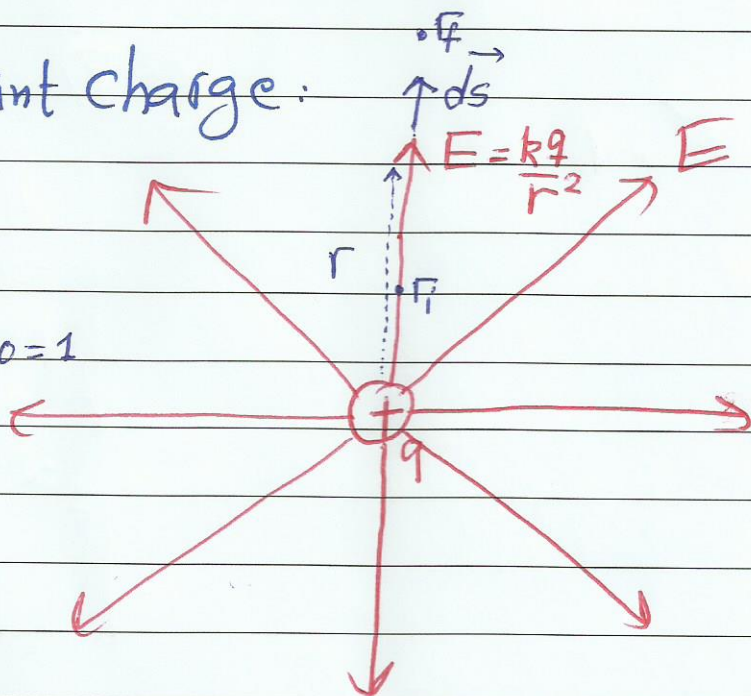 r_f
int Charge:
ds
E = kq/r²
E
r
r_i
0 = 1
+
q